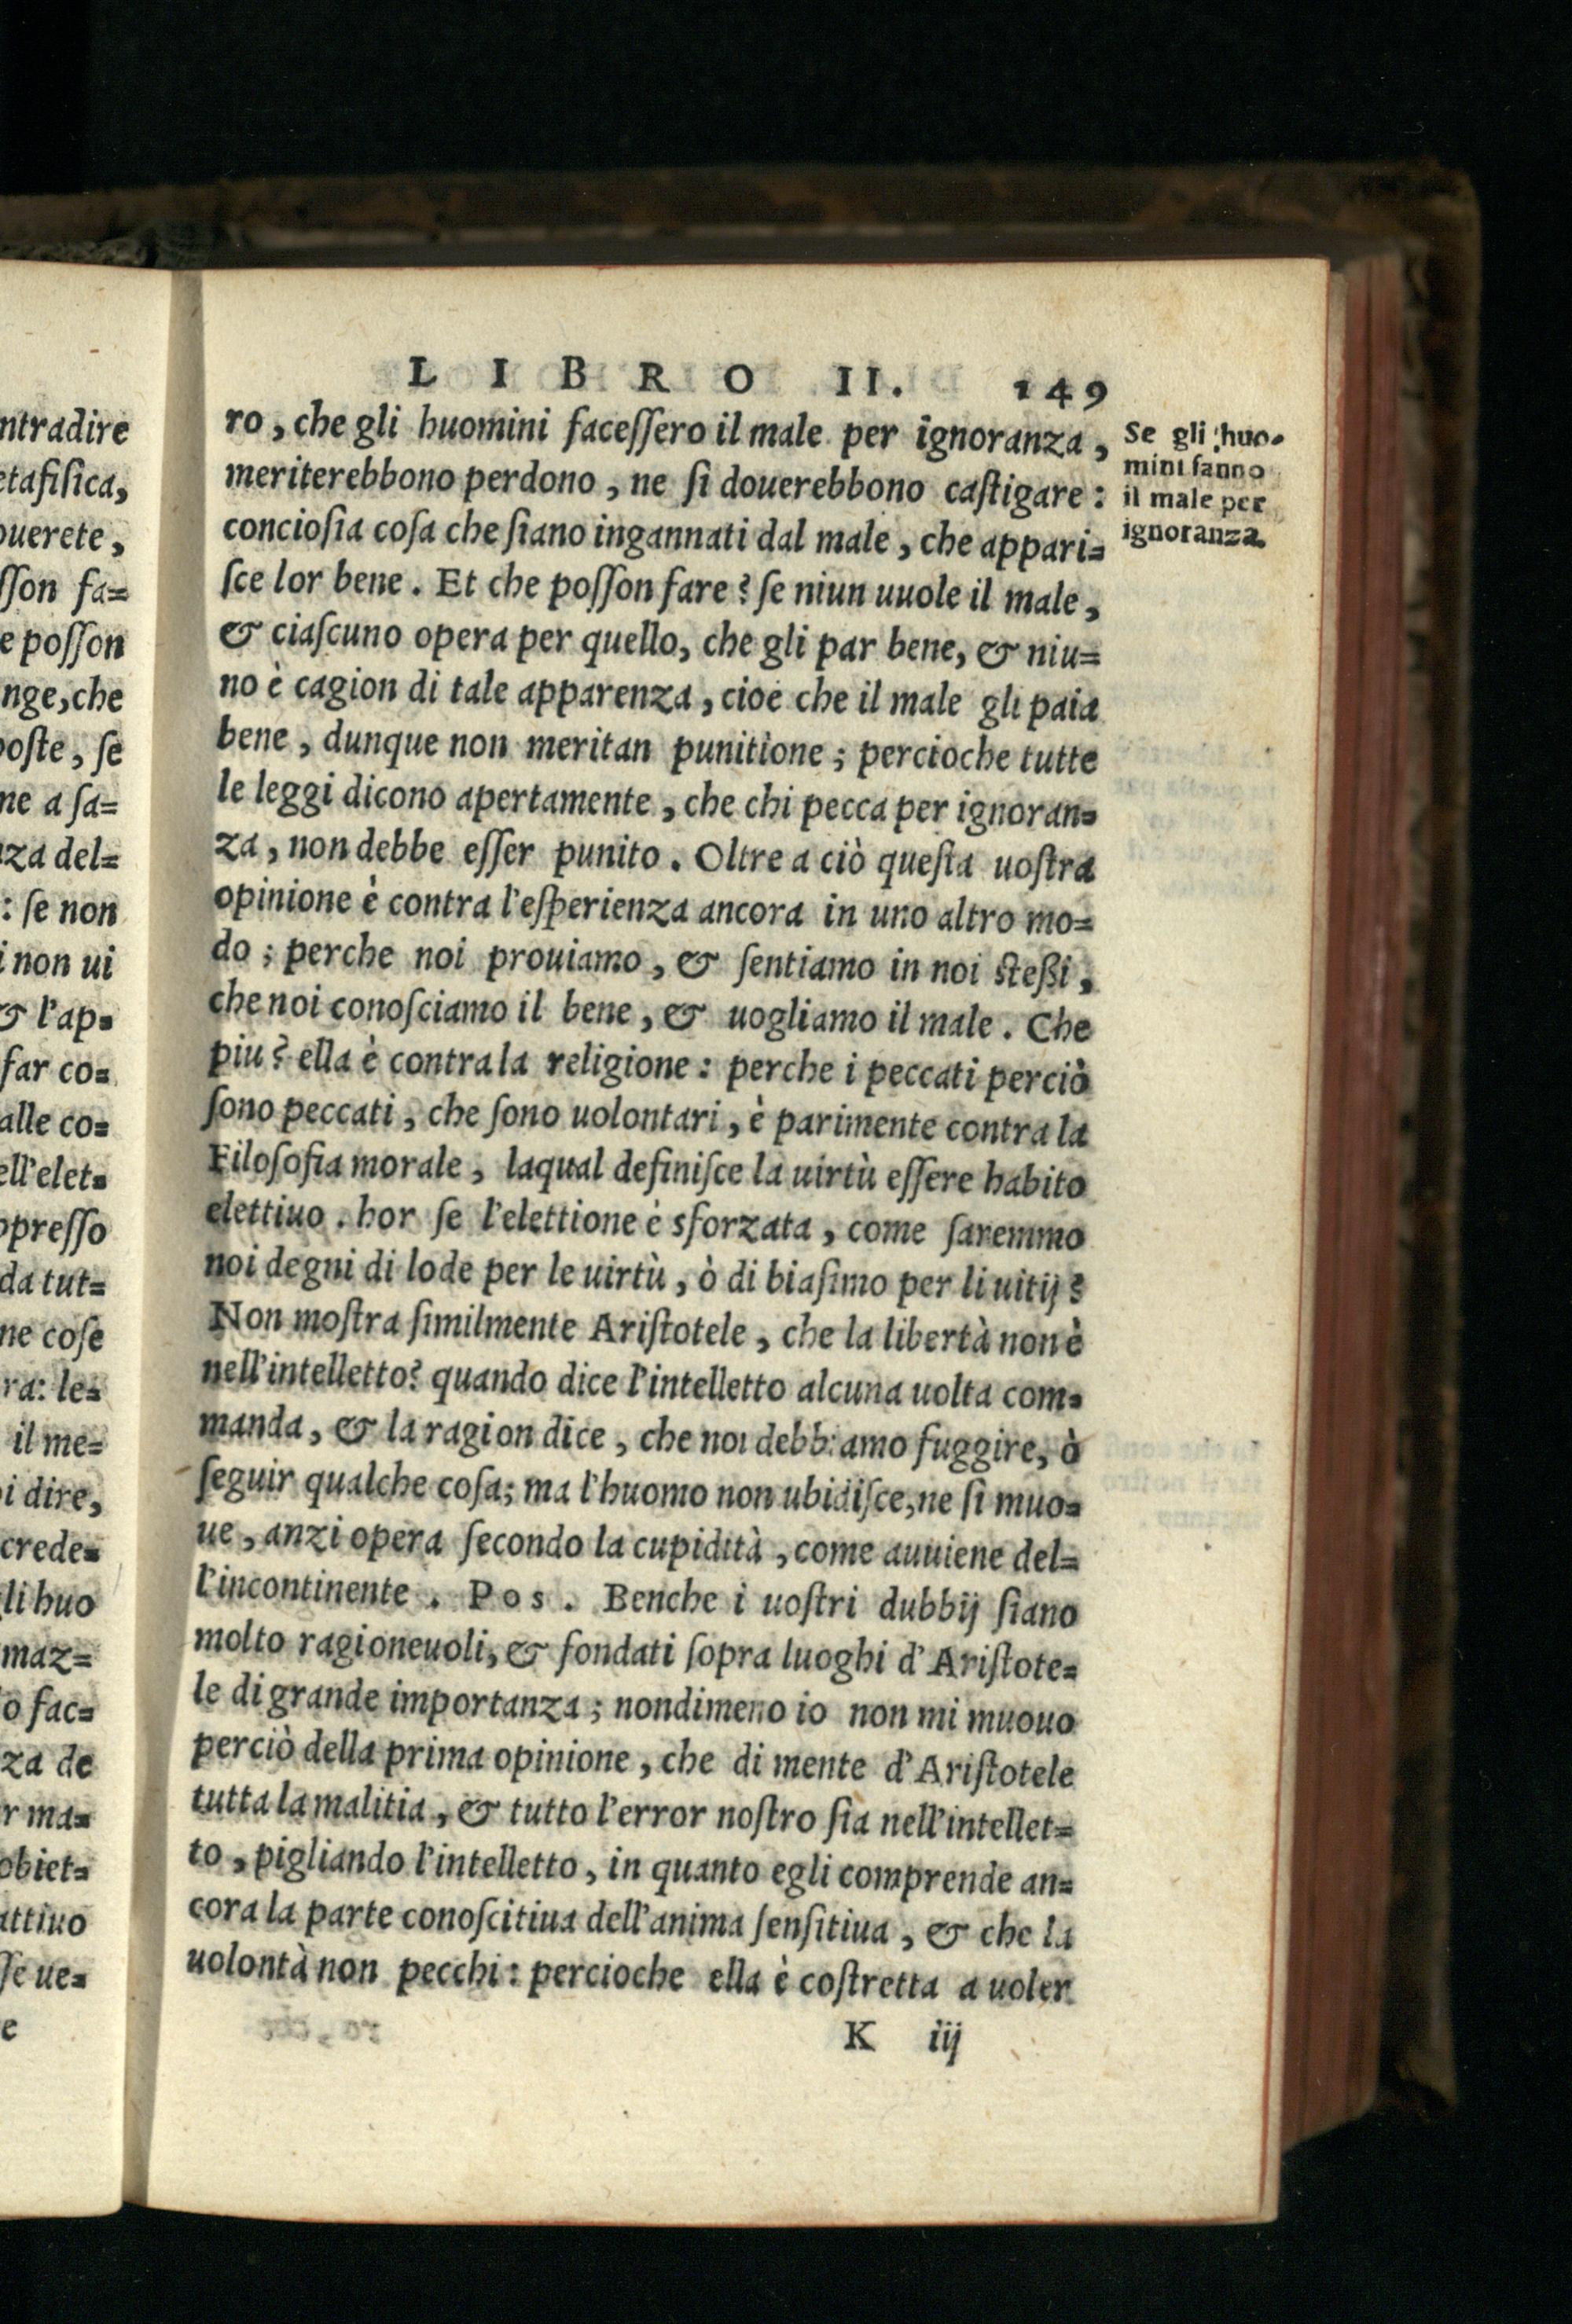 LIBRO II. 149
ro, che gli huomini faceſſero il male per ignoranza,
meriterebbono perdono, ne ſi douerebbono caſtigare:
conciosia coſa che ſiano ingannati dal male, che appari=
ſce lor bene. Et che poſſon fare? ſe niun uuole il male,
& ciaſcuno opera per quello, che gli par bene, & niu=
no è cagion di tale apparenza, cioè che il male gli paia
bene, dunque non meritan punitione; percioche tutte
le leggi dicono apertamente, che chi pecca per ignoran=
za, non debbe eſſer punito. Oltre a ciò queſta uoſtra
opinione è contra l'eſperienza ancora in uno altro mo=
do; perche noi prouiamo, & ſentiamo in noi ſteßi,
che noi conoſciamo il bene, & uogliamo il male. Che
piu? ella è contra la religione: perche i peccati perciò
ſono peccati, che ſono uolontari, è parimente contra la
Filoſofia morale, laqual definiſce la uirtù eſſere habito
elettiuo. hor ſe l'elettione è sforzata, come ſaremmo
noi degni di lode per le uirtù, ò di biaſimo per li uitij?
Non moſtra ſimilmente Ariſtotele, che la libertà non è
nell'intelletto? quando dice l'intelletto alcuna uolta com=
manda, & la ragion dice, che noi debbiamo fuggire, ò
ſeguir qualche coſa; ma l'huomo non ubidiſce, ne ſi muo=
ue, anzi opera ſecondo la cupidità, come auuiene del=
l'incontinente. Pos. Benche i uoſtri dubbij ſiano
molto ragioneuoli, & fondati ſopra luoghi d'Ariſtote=
le di grande importanza; nondimeno io non mi muouo
perciò della prima opinione, che di mente d'Ariſtotele
tutta la malitia, & tutto l'error noſtro ſia nell'intellet=
to, pigliando l'intelletto, in quanto egli comprende an=
cora la parte conoſcitiua dell'anima ſenſitiua, & che la
uolontà non pecchi: percioche ella è coſtretta a uoler
K iij
Se gli huo-
mini fanno
il male per
ignoranza.
ntradire
etafiſica,
ouerete,
ſſon fa=
e poſſon
nge, che
poſte, ſe
ne a ſa=
za del=
: ſe non
i non ui
& l'ap=
far co=
alle co=
ell'elet=
ppreſſo
da tut=
ne coſe
ra: le=
il me=
i dire,
crede=
li huo
maz=
o fac=
za de
r ma=
obiet=
attiuo
ſſe ue=
e